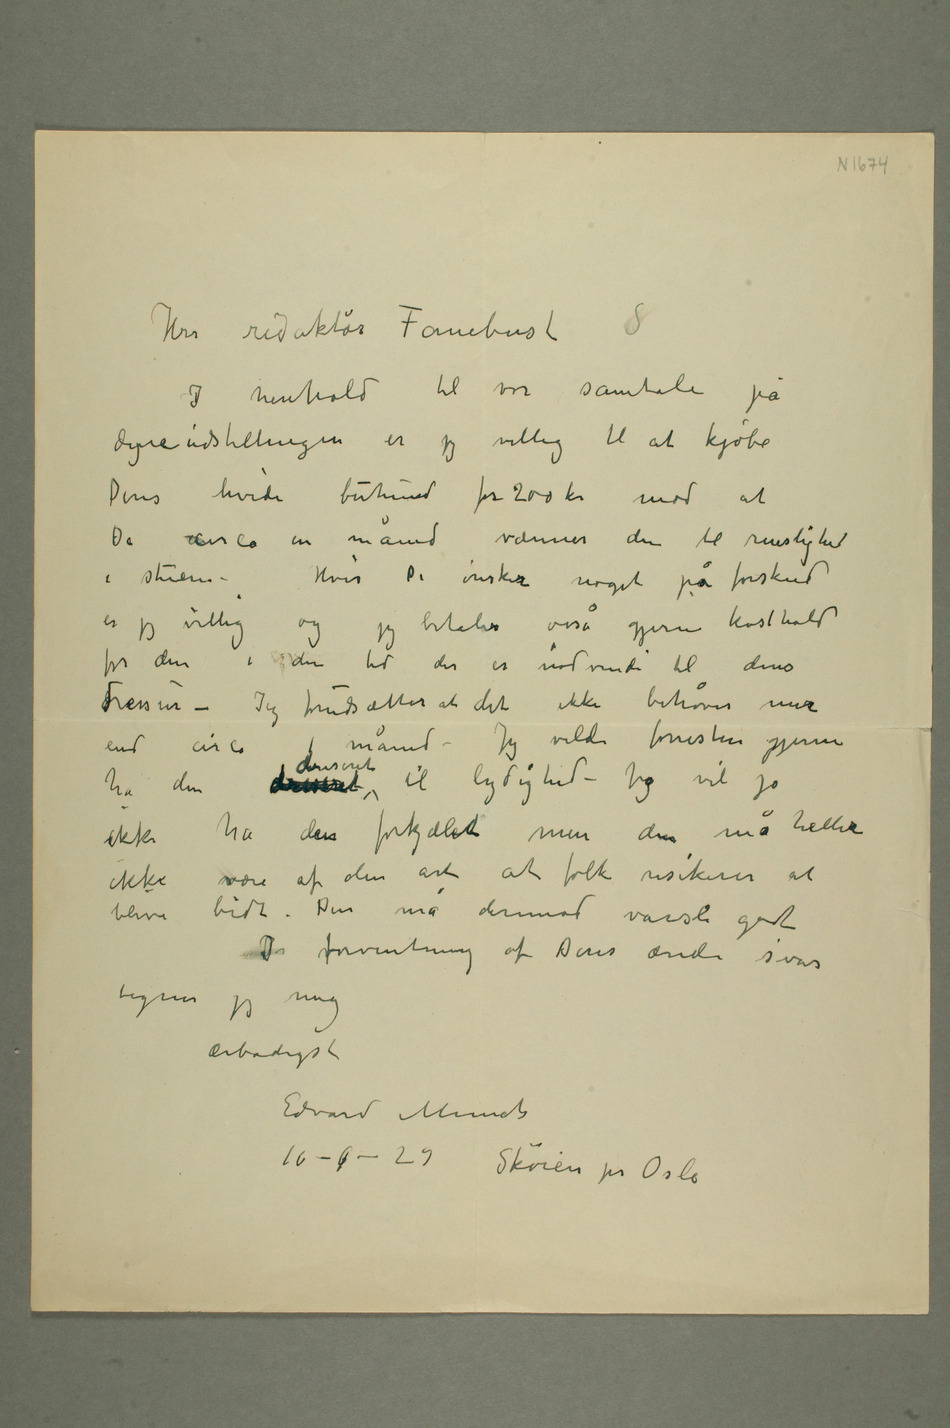 N 1674
Herr redaktør Fanebust 8
I henhold til vor samtale på
dyreudstillingen er jeg villig til at kjøbe
Deres hvide buhund for 200 kr mod at
De circa en måned vænner den til renslighed
i stuerne – Hvis De ønsker noget på forskud
er jeg villig og jeg betaler også gjerne kosthold
for den i den tid der er nødvendi til dens
dressur – Jeg forudsætter at det ikke behøver mer
end circa 1 måned – Jeg vilde forresten gjerne
ha den dreseret til lydighed – Jeg vil jo
ikke ha den forkjælet men den må heller
ikke være af den art at folk risikerer at
blive bidt. Den må derimod varsle godt
I forventning af Deres ærede svar
tegner jeg mig
ærbødigst
Edvard Munch
16–6–29 Skøien pr Oslo